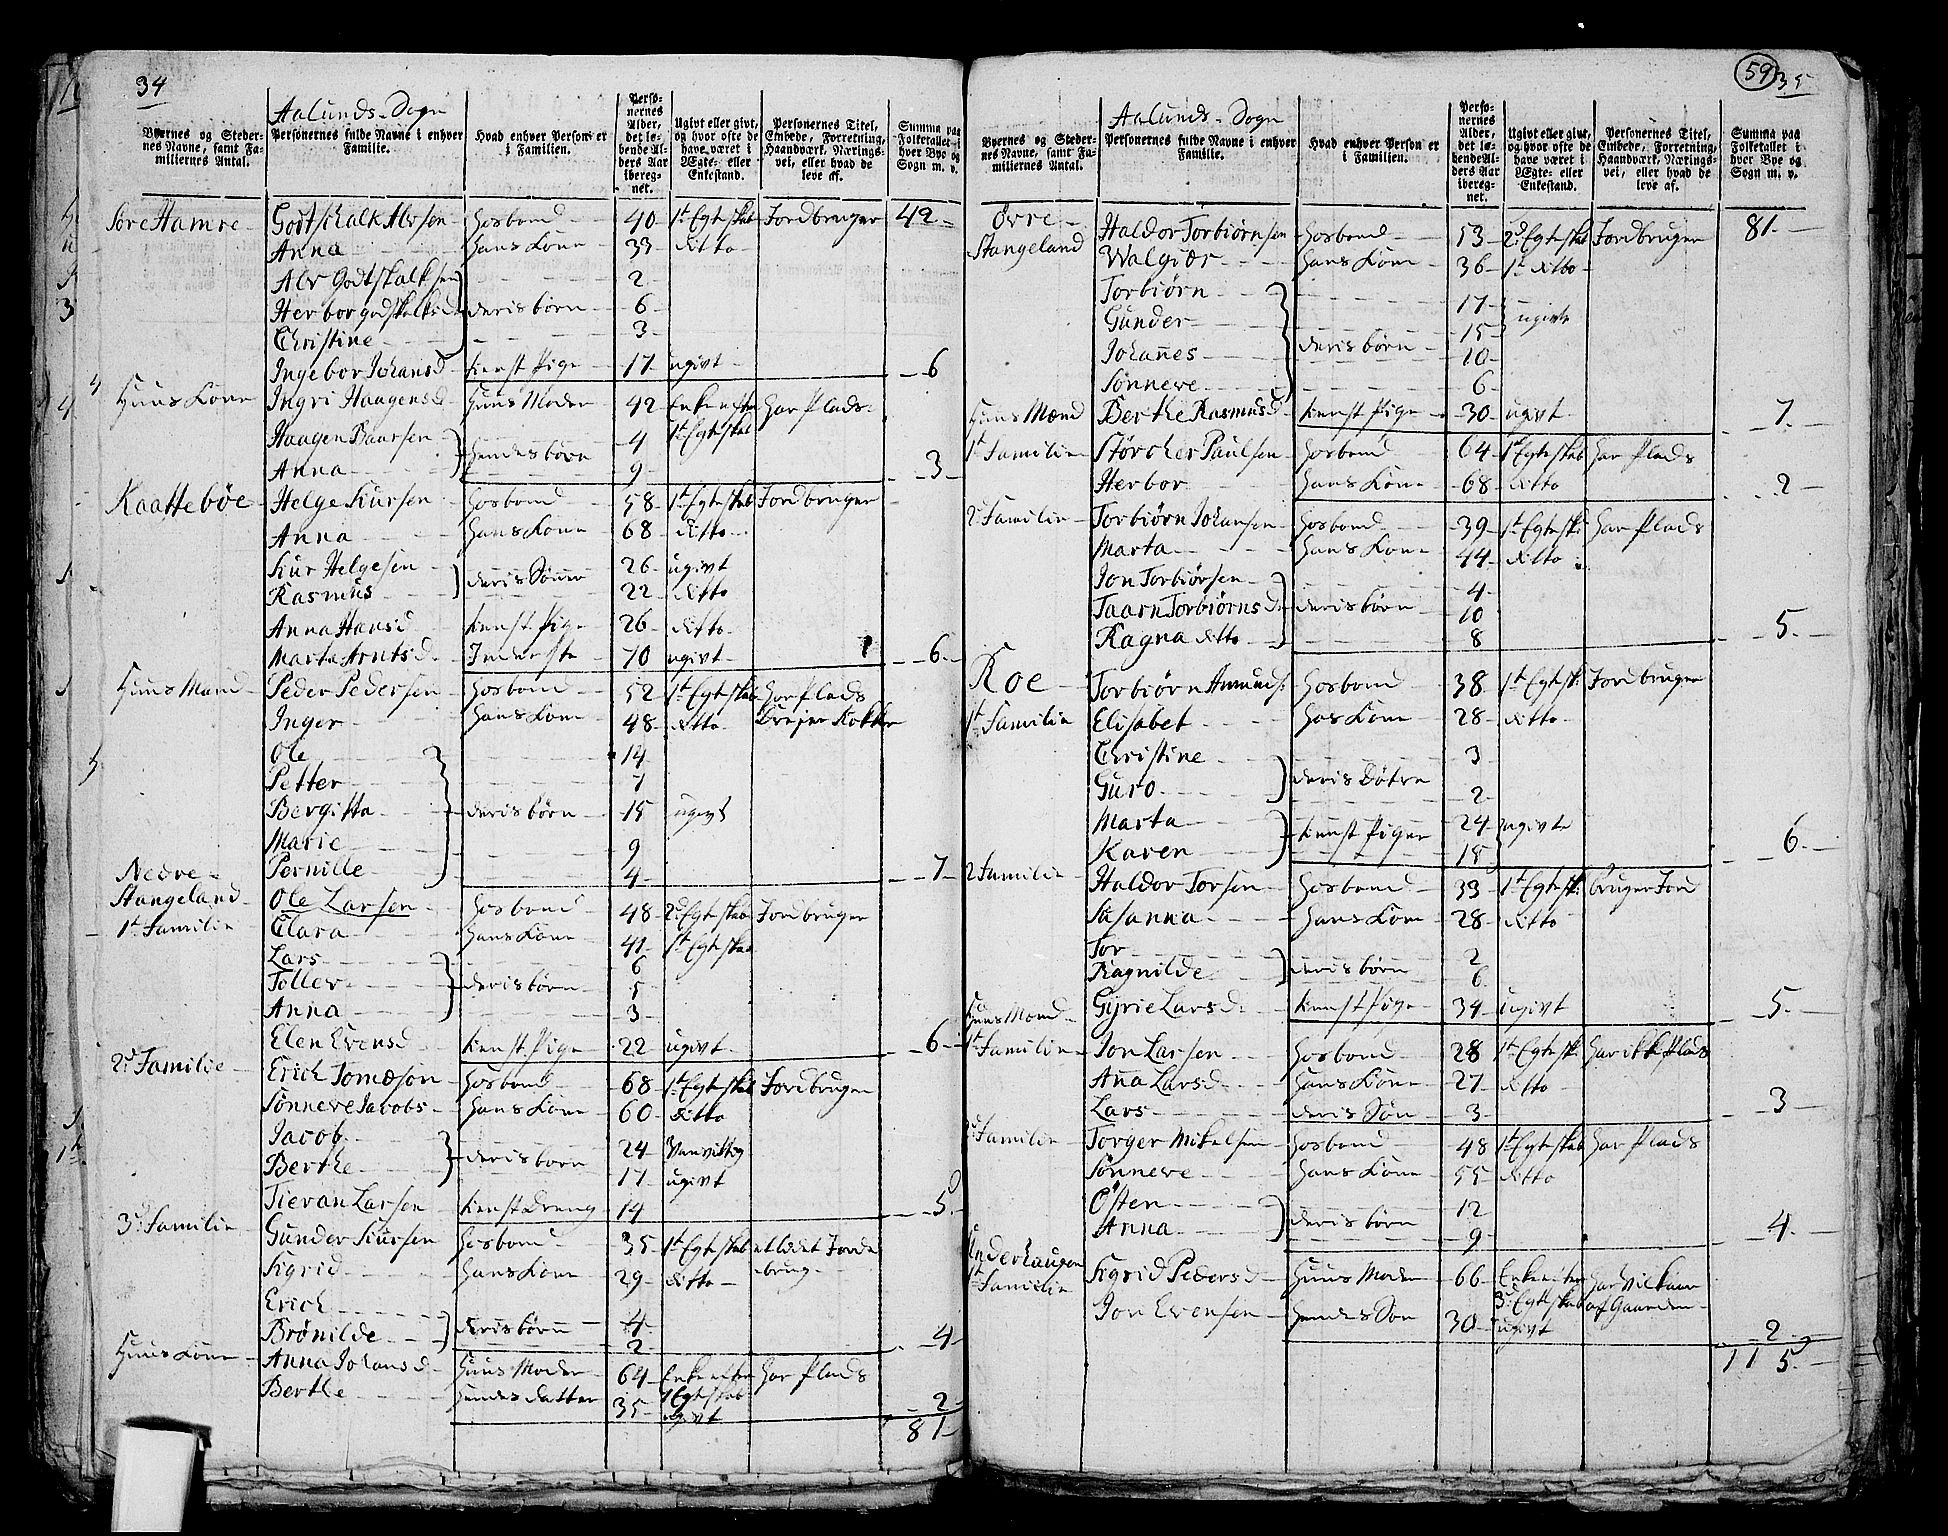 34
Aalunds Sogn
Byernes og Steder-
nes Navne, samt Fa-
miliernes Antal.
Personernes fulde Navne i enhver
Familie.
Hvad enhver Person er
i Familien.
Perso-
nernes
Alder,
det lø-
bende Al-
ders Aar
ibereg-
net.
Ugivt eller givt,
og hvor ofte de
have været i
Ægte- eller
Enkestand.
Personernes Titel,
Embede, Forretning,
Haandværk, Nærings-
vei, eller hvad de
leve af.
Summa paa
Folketallet i
hver Bye og
Sogn m. v.
Hamre Godtschalk Alvsen Hosbond 40 1t Egteskab Jordbruger 42
Anna Hans Kone 33 ditto
Alv Godtskalksen 2
Herbor godskalksd deris børn 6
Christine 3
Ingebor Johansd tienst Pige 17 ugivt 6
Huus Kone Ingri Haagensd Huus Moder 42 Enke efter Har Plads
1t Egteskab
Haagen Baarsen 4
Anna hendes børn 9 3
Kaattebøe Helge Siursen Hosbond 58 1t Egteskab Jordbruger
Anna Hans Kone 68 ditto
Siur Helgesen 26 ugivt
Rasmus deris Sønner 22 ditto
Anna Hansd tienst Pige 26 ditto
Marta Arntsd Inderste 70 ugivt 6
Huus Mand Peder Pedersen Hosbond 52 1t Egteskab Har Plads
Inger Hans Kone 48 ditto Drejer Rokker
Ole 14
Petter 7
Bergitta deris børn 15 ugivt
Marie 9
Pernille 4 7
Nedre
Stangeland
1t Familie
Ole Larsen Hosbond 48 2d Egteskab Jordbruger
Clara Hans Kone 41 1t Egteskab
Lars 6
Toller deris børn 5
Anna 3
Elen Evensd tienst Pige 22 ugivt 6
2d Familie Erich Tomæsøn Hosbond 68 1t Egteskab Jordbruger
Sønneve Jacobs Hans Kone 60 ditto
Jacob 24 Vanvittig
Berthe deris børn 17 ugivt
Tieran Larsen tienst Dreng 14 5
3d Familie Gunder Siursen Hosbond 35 1t Egteskab et lidet Jorde
brug
Sigrid Hans Kone 29 ditto
Erich 4
Brønilde deris børn 2 4
Huus Kone Anna Johansd Huus Moder 64 Enke efter Har Plads
1 Egteskab
Berthe hendes datter 35 ugivt 2
81
59
35
Aalunds Sogn
Byernes og Steder-
nes Navne, samt Fa-
miliernes Antal.
Personernes fulde Navne i enhver
Familie.
Hvad enhver Person er
i Familien.
Perso-
nernes
Alder,
det lø-
bende Al-
ders Aar
ibereg-
net.
Ugivt eller givt,
og hvor ofte de
have været i
Ægte- eller
Enkestand.
Personernes Titel,
Embede, Forretning,
Haandværk, Nærings-
vei, eller hvad de
leve af.
Summa paa
Folketallet i
hver Bye og
Sogn m. v.
Øvre
Stangeland
Haldor Torbiørnsen Hosbond 53 2d Egteskab Jordbruger 81
Walgiær Hans Kone 36 1t ditto
Torbiørn 17
Gunder 15 ugivte
Johannes deris børn 10
Sønneve 6
Berthe Rasmusd tienst Pige 30 ugivt 7
Huus Mænd
1t Familie Størcher Paulsen Hosbond 64 1t Egteskab Har Plads
Herbor Hans Kone 68 ditto 2
2d Familie Torbiørn Johansen Hosbond 39 1t Egtesk: Har Plads
Marta Hans Kone 44 ditto
Jon Torbiørsen 4
Taarn Torbiørnsd deris børn 10
Ragna ditto 8 5
Roe
1t Familie
Torbiørn Amunds: Hosbond 38 1t Egtesk: Jordbruger
Elisabet Hans Kone 28 ditto
Christine 3
Guro deris Døtre 2
Marta 24 ugivte
Karen tienst Piger 15 6
2 Familie Haldor Torsen Hosbond 33 1t Egtesk: Bruger Jord
Susanna Hans Kone 28 ditto
Tor 2
Ragnilde deris børn 6
Gyrie Larsd tienst Pige 34 ugivt 5
Huus Mænd
1t Familie Jon Larsen Hosbond 28 1t Egtesk. Har ikke Plads
Aña Larsd Hans Kone 27 ditto
Lars deris Søn 3 3
Familie Torger Mikelsen Hosbond 48 1t Egteskab Har Plads
Sønneve Hans Kone 55 ditto
Østen 12
Anna deris børn 9 4
Underhaugen
1t Familie
Sigrid Pedersd Huus Moder 66 Enke efter Har Vilkaar
3d Egteskab af Gaarden
Jon Evensen hendes Søn 30 ugivt 2
115